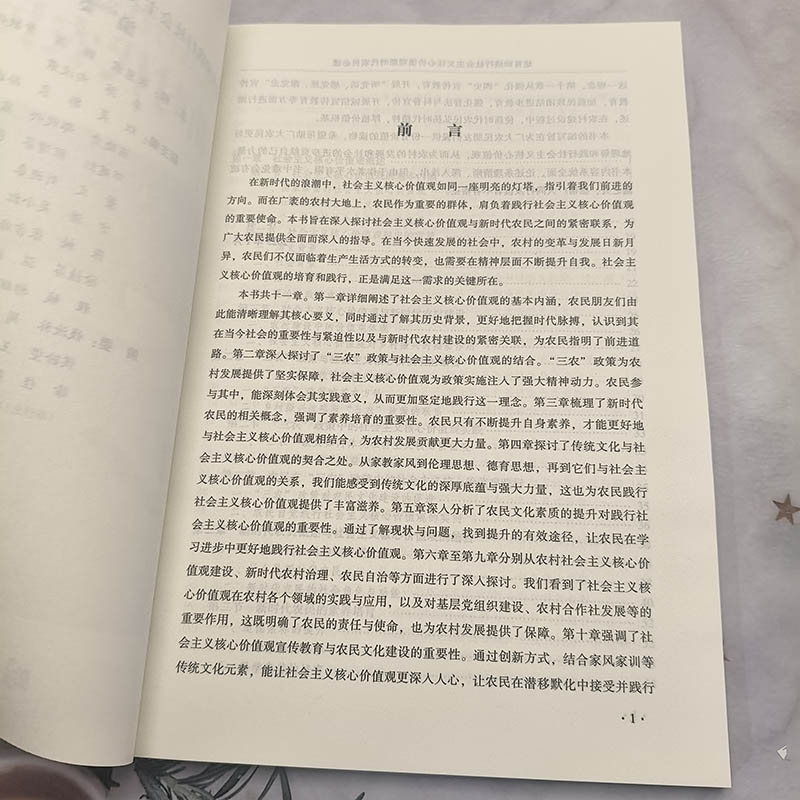 前 言
在新时代的浪潮中，社会主义核心价值观如同一座明亮的灯塔，指引着我们前进的
方向。而在广袤的农村大地上，农民作为重要的群体，肩负着践行社会主义核心价值观
的重要使命。本书旨在深入探讨社会主义核心价值观与新时代农民之间的紧密联系，为
广大农民提供全面而深入的指导。在当今快速发展的社会中，农村的变革与发展日新月
异，农民们不仅面临着生产生活方式的转变，也需要在精神层面不断提升自我。社会主
义核心价值观的培育和践行，正是满足这一需求的关键所在。
本书共十一章。第一章详细阐述了社会主义核心价值观的基本内涵，农民朋友们由
此能清晰理解其核心要义，同时通过了解其历史背景，更好地把握时代脉搏，认识到其
在当今社会的重要性与紧迫性以及与新时代农村建设的紧密关联，为农民指明了前进道
路。第二章深入探讨了“三农”政策与社会主义核心价值观的结合。“三农”政策为农
村发展提供了坚实保障，社会主义核心价值观为政策实施注入了强大精神动力。农民参
与其中，能深刻体会其实践意义，从而更加坚定地践行这一理念。第三章梳理了新时代
农民的相关概念，强调了素养培育的重要性。农民只有不断提升自身素养，才能更好地
与社会主义核心价值观相结合，为农村发展贡献更大力量。第四章探讨了传统文化与
社会主义核心价值观的契合之处。从家教家风到伦理思想、德育思想，再到它们与社会主
义核心价值观的关系，我们能感受到传统文化的深厚底蕴与强大力量，这也为农民践行
社会主义核心价值观提供了丰富滋养。第五章深入分析了农民文化素质的提升对践行社
会主义核心价值观的重要性。通过了解现状与问题，找到提升的有效途径，让农民在学
习进步中更好地践行社会主义核心价值观。第六章至第九章分别从农村社会主义核心价
值观建设、新时代农村治理、农民自治等方面进行了深入探讨。我们看到了社会主义核
心价值观在农村各个领域的实践与应用，以及对基层党组织建设、农村合作社发展等的
重要作用，这既明确了农民的责任与使命，也为农村发展提供了保障。第十章强调了社
会主义核心价值观宣传教育与农民文化建设的重要性。通过创新方式，结合家风家训等
传统文化元素，能让社会主义核心价值观更深入人心，让农民在潜移默化中接受并践行
· 1 ·